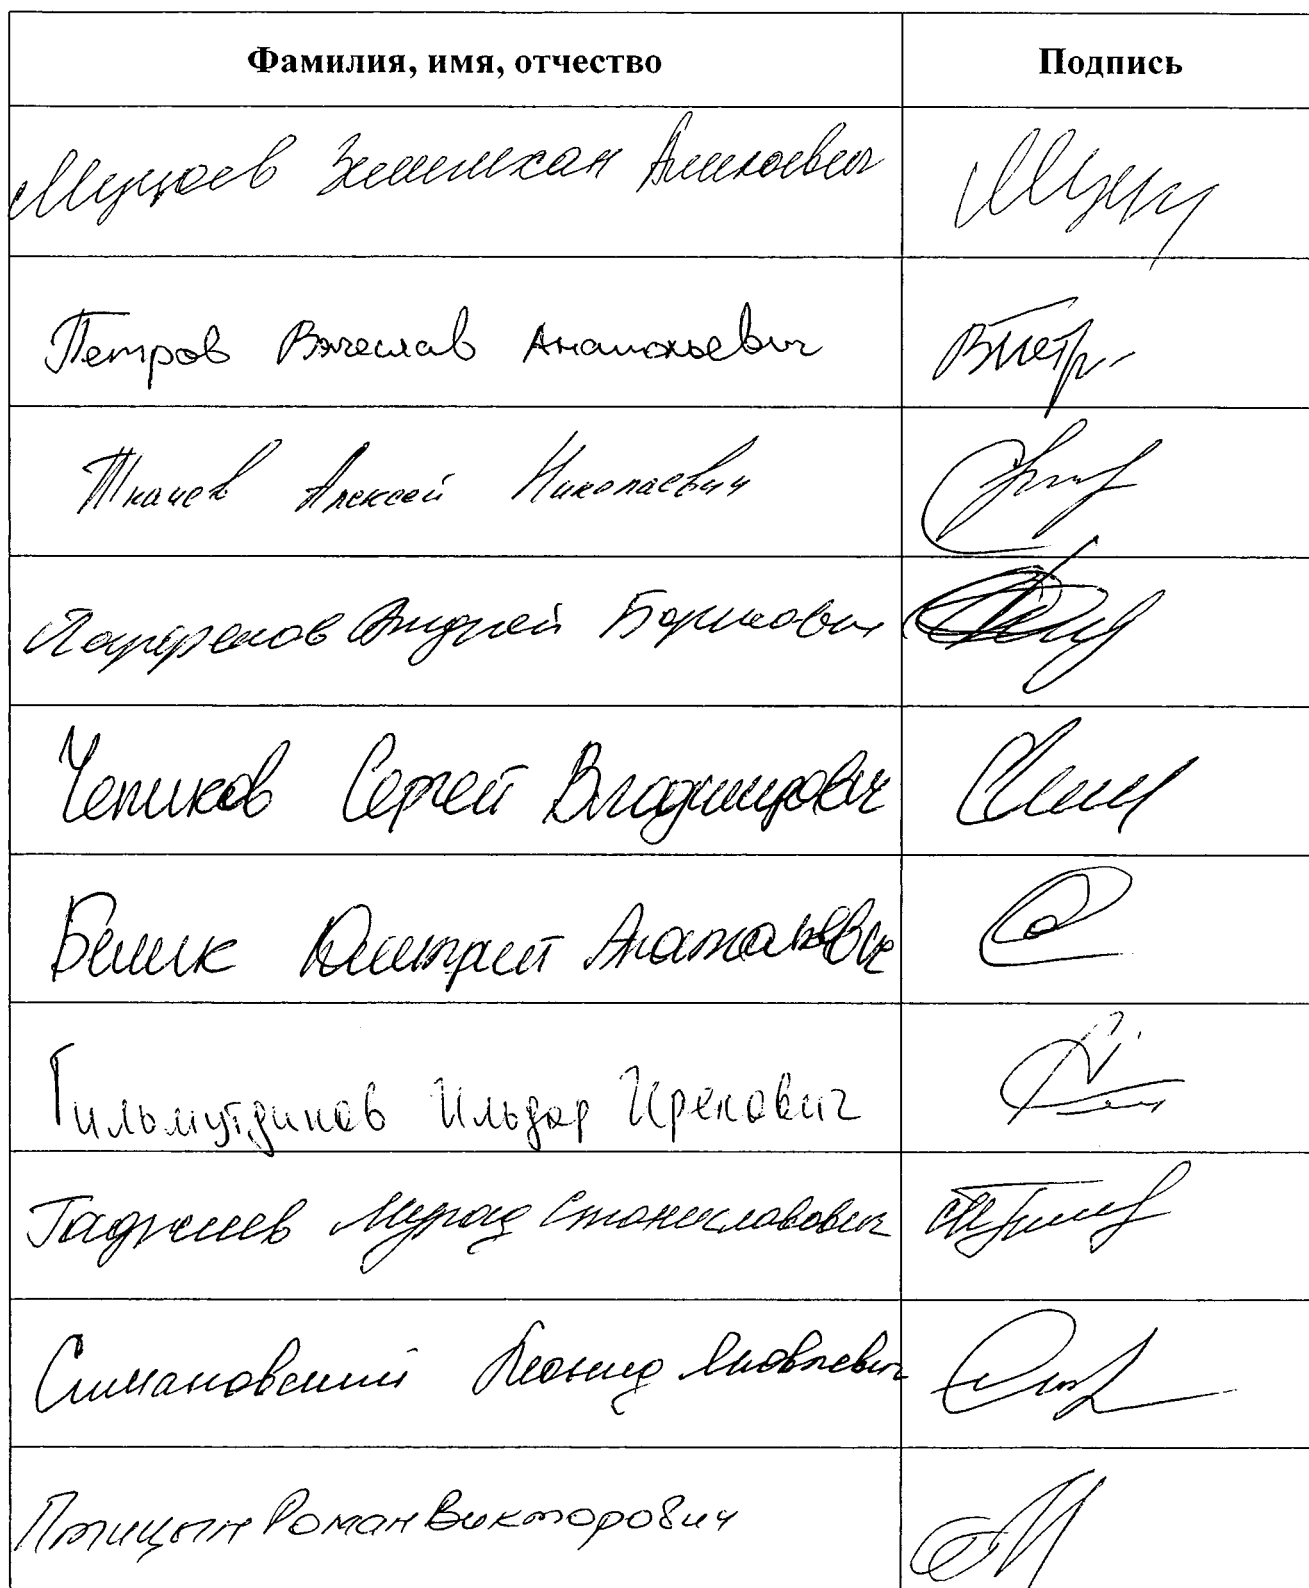 Фамилия, имя, отчество Подпись
Муцоев Зелимхан Аликоевич
Петров Вячеслав Анатольевич
Ткачев Алексей Николаевич
Андрей Борисович
Чепиков Сергей Владимирович
Белик Дмитрий Анатольевич
Гильмутдинов Ильдар Ирекович
Гаджиев Мурад Станиславович
Симановский Леонид Яковлевич
Птицын Роман Викторович